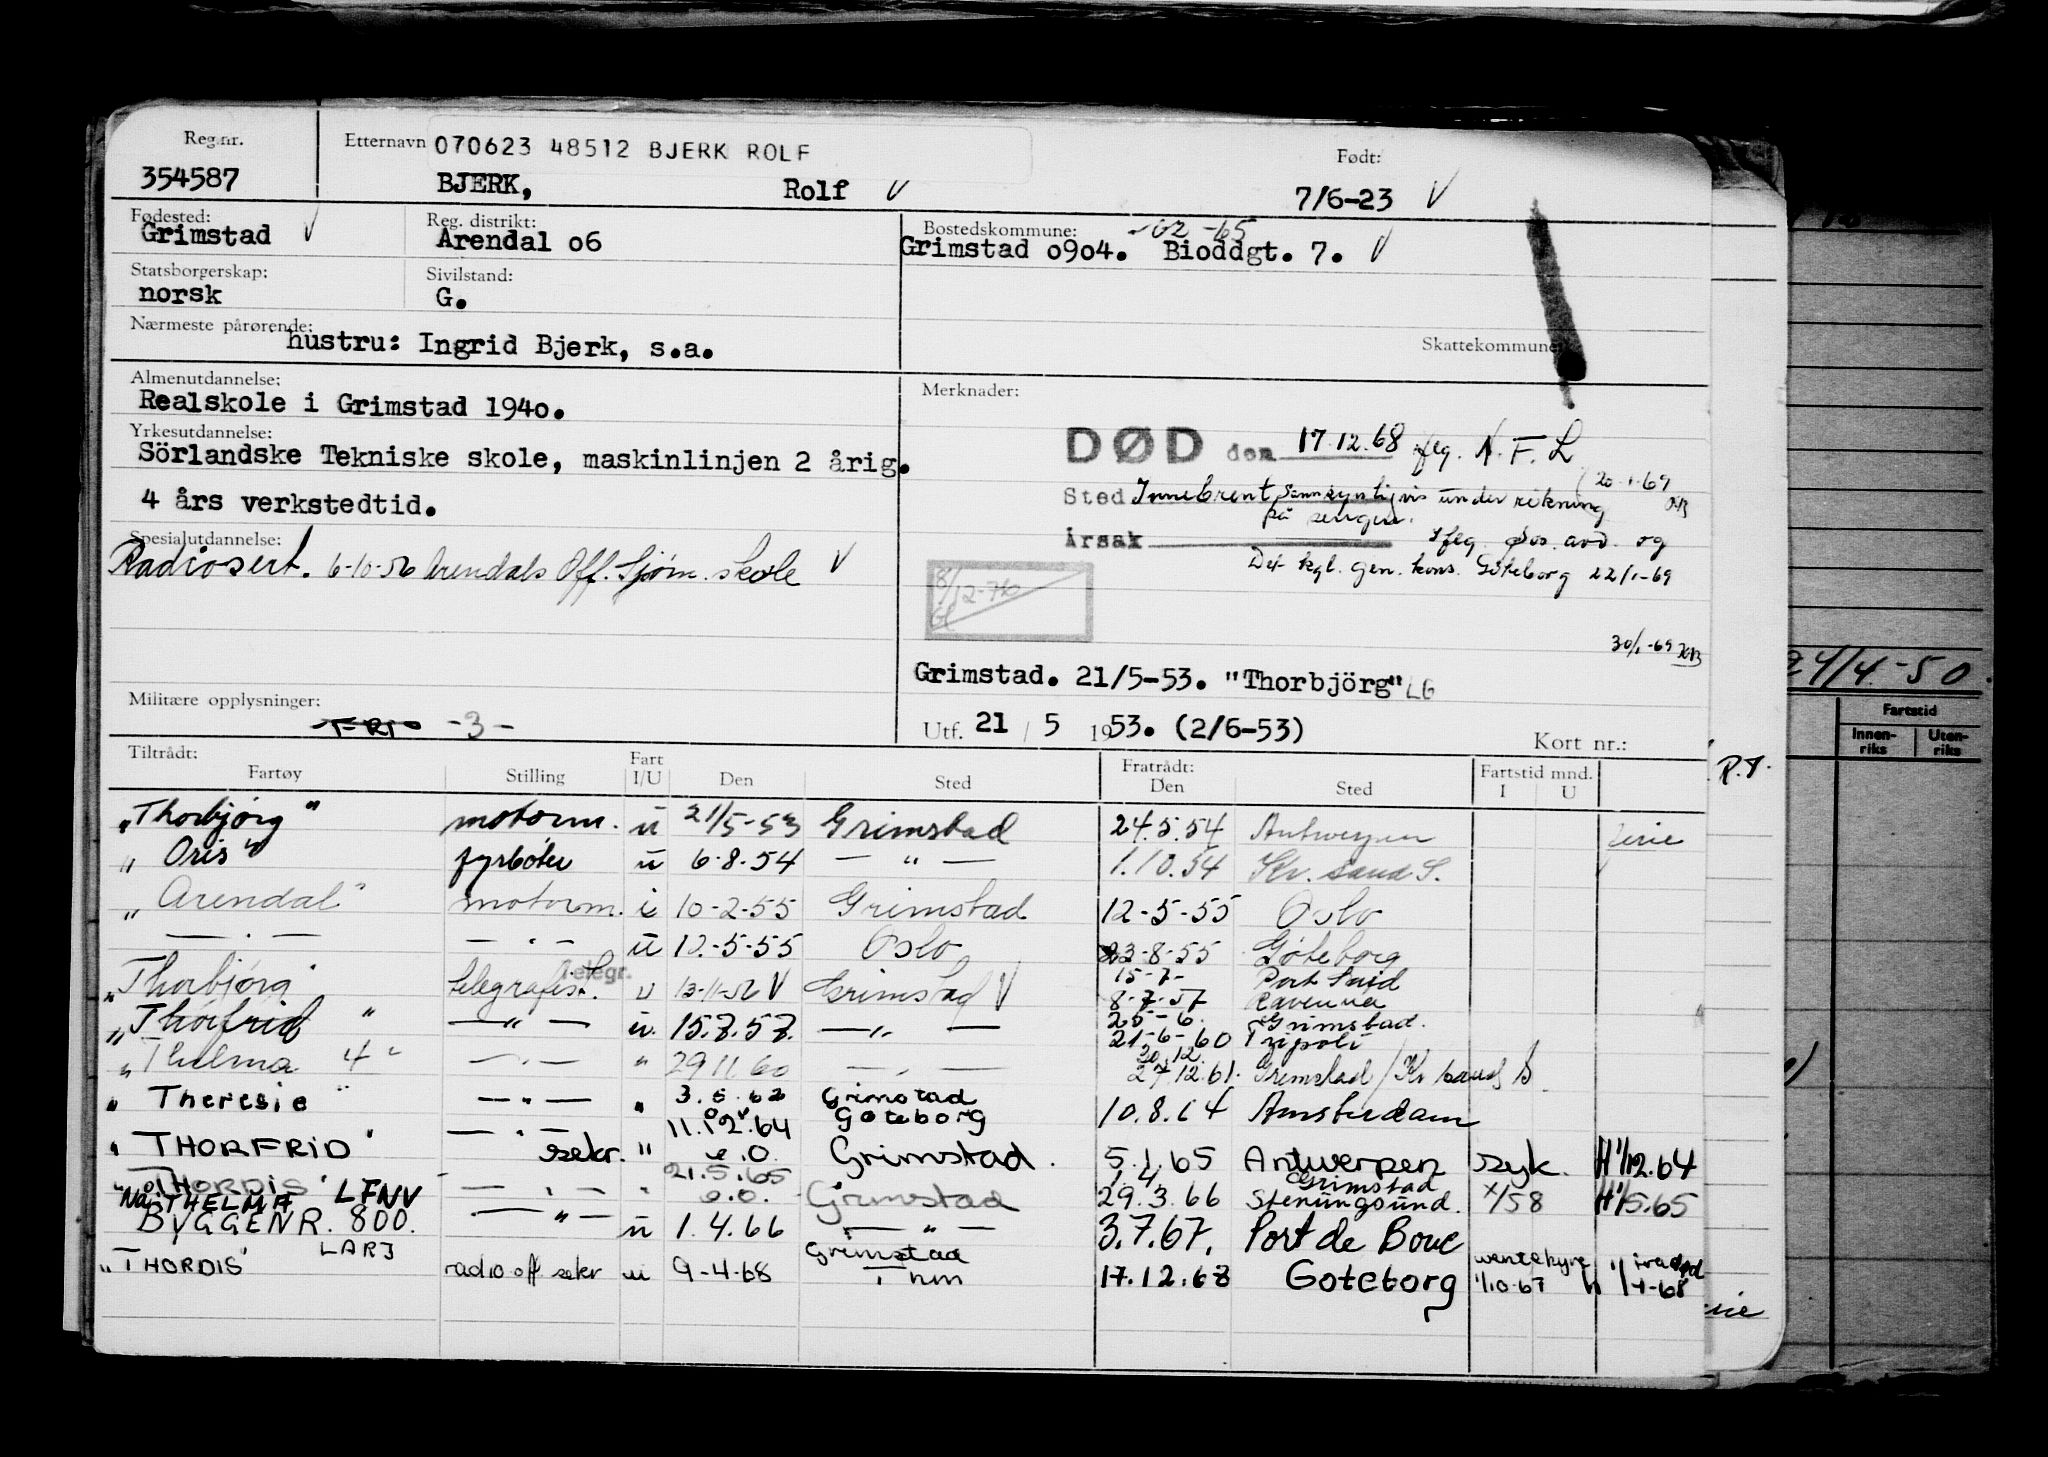 Reg.nr.
354587
Etternavn 070623 48512 BJERK ROLF
BJERK, Rolf V
Født:
7/6-23 V
Fødested:
Grimstad V
Reg. distrikt:
Arendal o6
Bostedskommune: -62 -65
Grimstad o9o4. Bioddgt. 7. V
Statsborgerskap:
norsk
Sivilstand:
G.
Nærmeste pårørende:
hustru: Ingrid Bjerk, s.a.
Skattekommune
Almenutdannelse:
Realskole i Grimstad 194o.
Yrkesutdannelse:
Sörlandske Tekniske skole, maskinlinjen 2 årig.
4 års verkstedtid.
Spesialutdannelse:
Radiosert. 6-10-56 Arendals Off. Sjøm. skole V
Militære opplysninger:
-3-
Merknader:
DØD den 17.12.68 flg. N.F.L
20-1-69
Sted Innebrent sannsynligvis under røkning
på sengen.
årsak Iflg. Sos. avd. og
Det kgl. gen. kons. Göteborg 22/1-69
8/12-70
30/1-69
Grimstad. 21/5-53. "Thorbjörg" LG
Utf. 21 / 5 1953. (2/6-53)
Kort nr.:
24/4-50.
Fartstid
Innen-riks Uten-riks
R.T.
Tiltrådt:
Fartøy Stilling Fart I/U Den Sted Fratrådt: Den Sted Fartstid mnd. I U
"Thorbjörg" motorm. u 21/5-53 Grimstad 24.5.54 Antwerpen ferie
"Oris" fyrbøter u 6.8.54 — " — 1.10.54 Kr. sand S.
"Arendal" motorm. i 10-2-55 Grimstad 12-5-55 Oslo
— . — — . — u 12.-5-55 Oslo 23-8-55 Göteborg
"Thorbjørg telegrafist. Telegr. u 13-11-56 V Grimstad V 15-7- Port Said
8-7-57 Ravenna
"Thorfrid" — " — u. 15.8.58. — " — 25-6. Grimstad.
21-6-60 Tripoli
"Thelma 4" — . — " 29.11.60 — . — 20.12.
27.12.61. Grimstad / Kr sand S
"Theresie" — " — " 3.5.62 Grimstad
11.12.64 Göteborg 10.8.64 Amsterdam
"THORFRID" — . — sekr. " e.o. Grimstad. 5.1.65 Antwerpen syk. H 1/12.64
"THORDIS" — . — 21.5.65
e.o. Grimstad 1.4. Grimstad
29.3.66 Stenungsund. X/58 H 1/5.65
Nå: THELMA LFNV
BYGGENR. 800. — " — u 1.4.66 — " — 3.7.67. Port de Bouc
LARJ
"THORDIS" radio off sekr u 9-4-68 Grimstad
17.12.68 Göteborg ventehyre 1/10-67 1/4-68